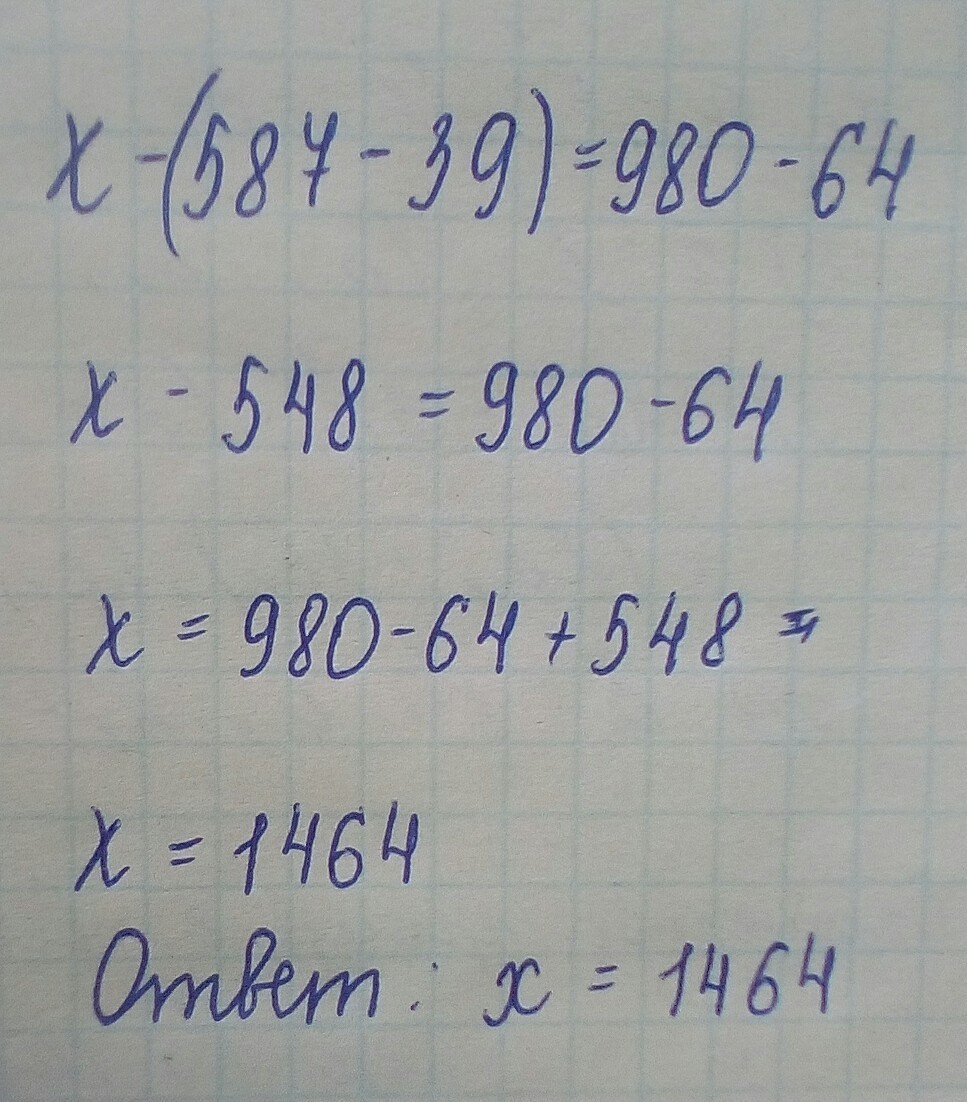 x - (587 - 39) = 980 - 64
x - 548 = 980 - 64
x = 980 - 64 + 548 =
x = 1464
Ответ: x = 1464